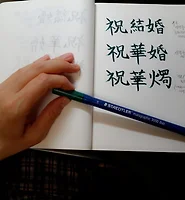 祝結婚
祝華婚
祝華燭
STAEDTLER